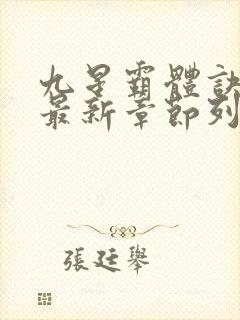 九星霸體訣
最新章節列
張廷舉